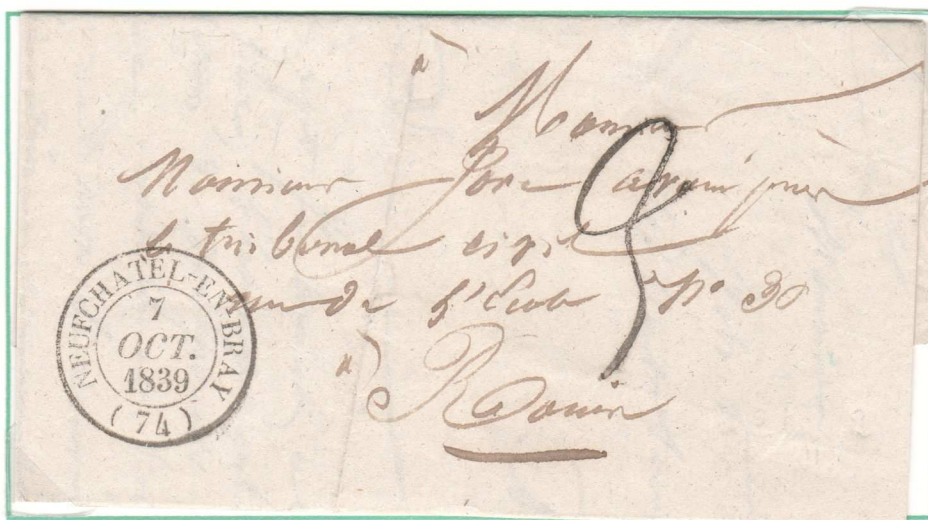 à
Monsieur
Monsieur avoué près
le tribunal civil
rue de l'École N° 30
à
Rouen
3
NEUFCHATEL-EN-BRAY
7
OCT.
1839
(74)